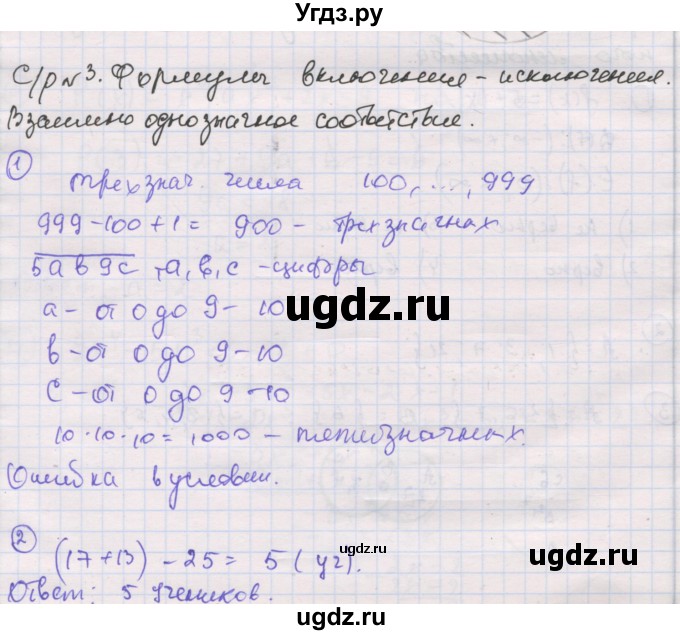 Угдз.ру
С/р № 3. Формулы включения - исключения.
Взаимно однозначное соответствие.
1 трехзнач. числа 100, ..., 999
999-100+1= 900 - трехзначных
5ав9с, а, в, с - цифры
а - от 0 до 9 - 10
ugdz.ru
в - от 0 до 9 - 10
с - от 0 до 9 - 10
10·10·10=1000 - пятизначных.
Ошибка в условии.
2 (17+13) - 25 = 5 (уч).
ugdz.ru
Ответ: 5 учеников.
ugdz.ru
ugdz.ru